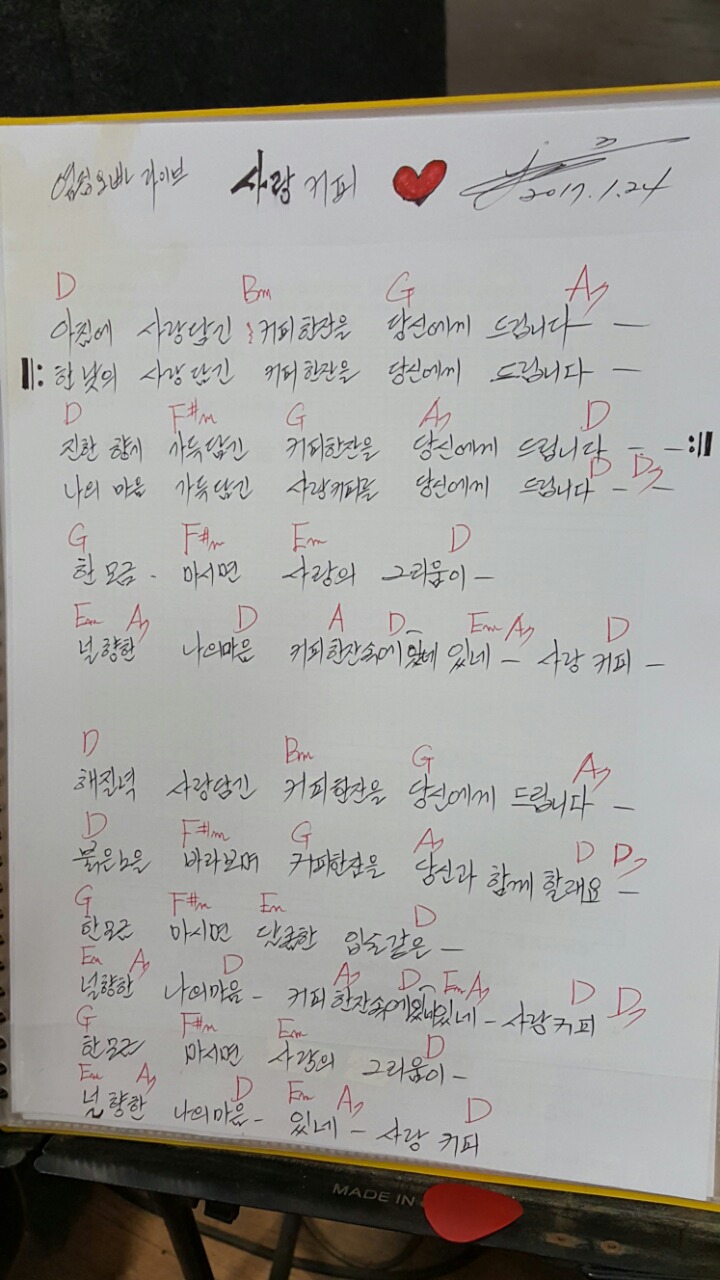 라이브 사랑 커피 2017.1.24
D Bm G A7
아침에 사랑담긴 커피한잔을 당신에게 드립니다 —
한 낮의 사랑담긴 커피한잔을 당신에게 드립니다 —
D F#m G A7 D
진한 향기 가득담긴 커피한잔을 당신에게 드립니다 - -
D D7
나의 마음 가득담긴 사랑커피를 당신에게 드립니다 - -
G F#m Em D
한모금 - 마시면 사랑의 그리움이 -
Em A7 D A D Em A7 D
널향한 나의마음 커피한잔속에 있네 있네 - 사랑 커피 -
D Bm G A7
해질녁 사랑담긴 커피한잔을 당신에게 드립니다 -
D F#m G A7 D D7
붉은노을 바라보며 커피한잔을 당신과 함께 할래요 -
G F#m Em D
한모금 마시면 달콤한 입술같은 -
Em A7 D A7 D Em A7 D D7
널향한 나의마음 - 커피한잔속에 있네 - 사랑커피
G F#m Em D
한모금 마시면 사랑의 그리움이 -
Em A7 D Em A7 D
널향한 나의마음 - 있네 - 사랑 커피
MADE IN